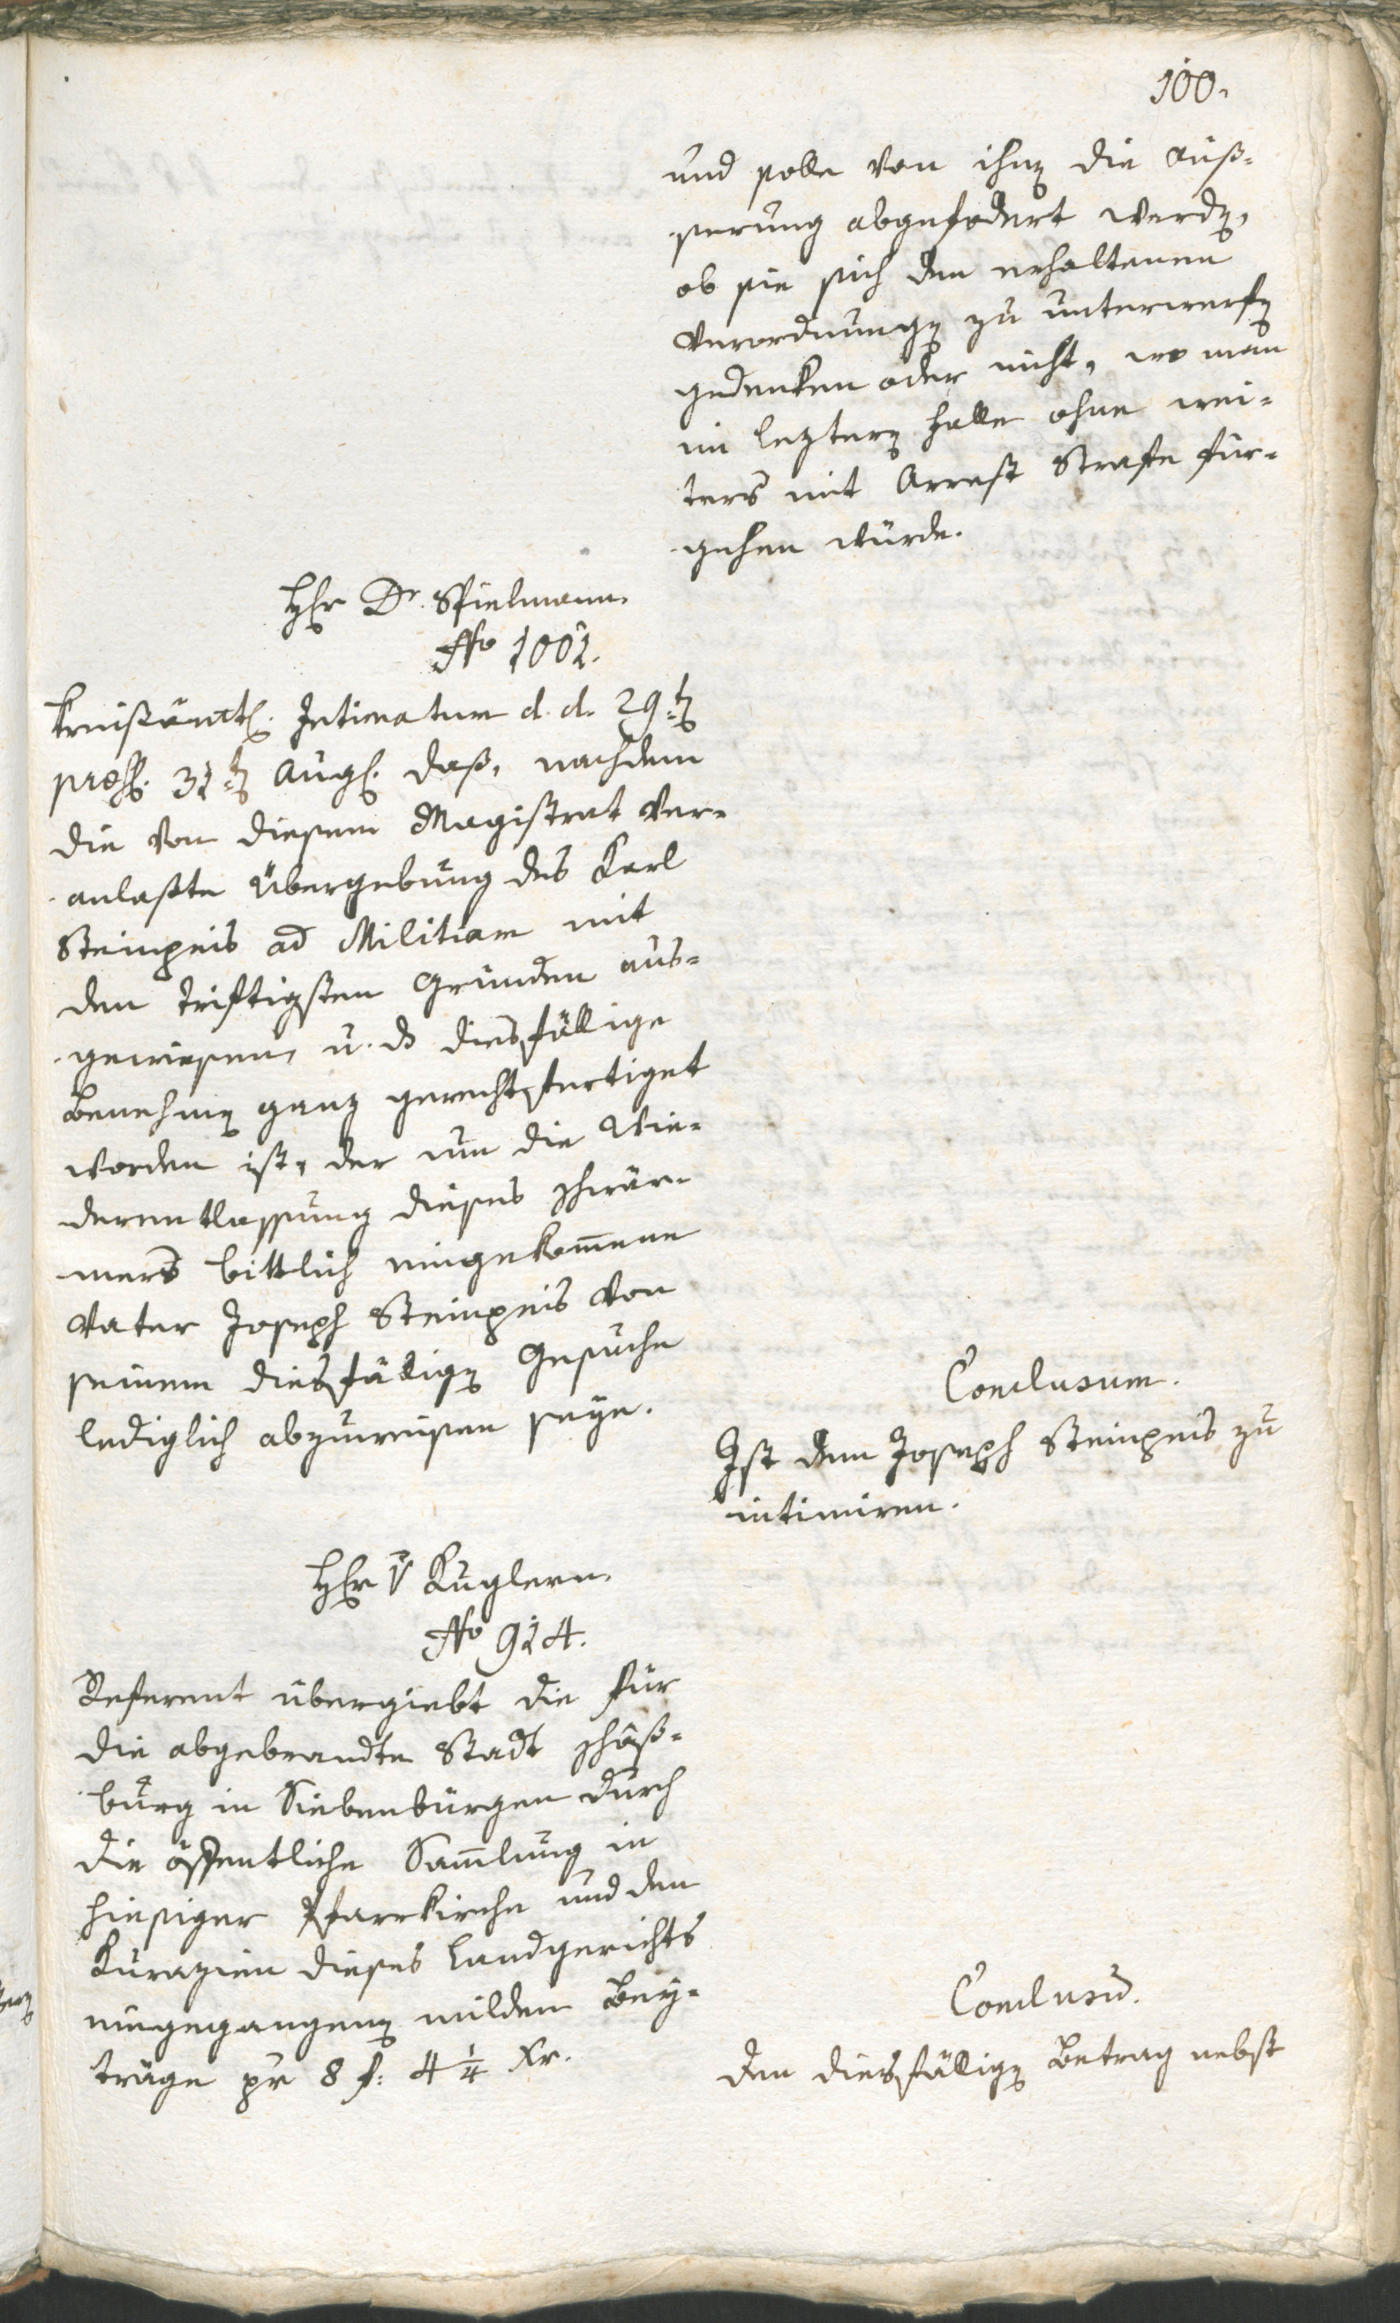 100.
und solle von ihnen die Äuß-
serung abgefodert werden,
ob sie sich den erhaltenen
Verordnungen zu unterwerfen
gedenken oder nicht, wo man
im leztern Falle ohne wei-
ters mit Arrest Strafe für-
gehen würde.
Herr Dr. Spielmann.
No 1001.
Kreisämtl. Intimatum d. d. 29ten
præs. 31ten Aug. daß, nachdem
die von diesem Magistrat ver-
anlaßte Übergebung des Karl
Steinpeis ad Militiam mit
den triftigsten Gründen aus-
gewiesen, u. das diesfällige
Benehmen ganz gerechtfertiget
worden ist, der um die Wie-
derentlassung dieses Schwär-
mers bittlich eingekom̅ene
Vater Joseph Steinpeis von
seinem diesfälligen Gesuche
lediglich abzuweisen seye.
Conclusum.
Ist dem Joseph Steinpeis zu
intimiren.
Herr v Kuglern.
No 914.
Referent übergiebt die für
die abgebrandte Stadt Schäß-
burg in Siebenbürgen durch
die öffentliche Sam̅lung in
hiesiger Pfarrkirche und den
Kurazien dieses Landgerichts
eingegangenen milden Bey-
träge pr 8 f: 4 1/4 Xr.
Conclusū.
Den diesfälligen Betrag nebst